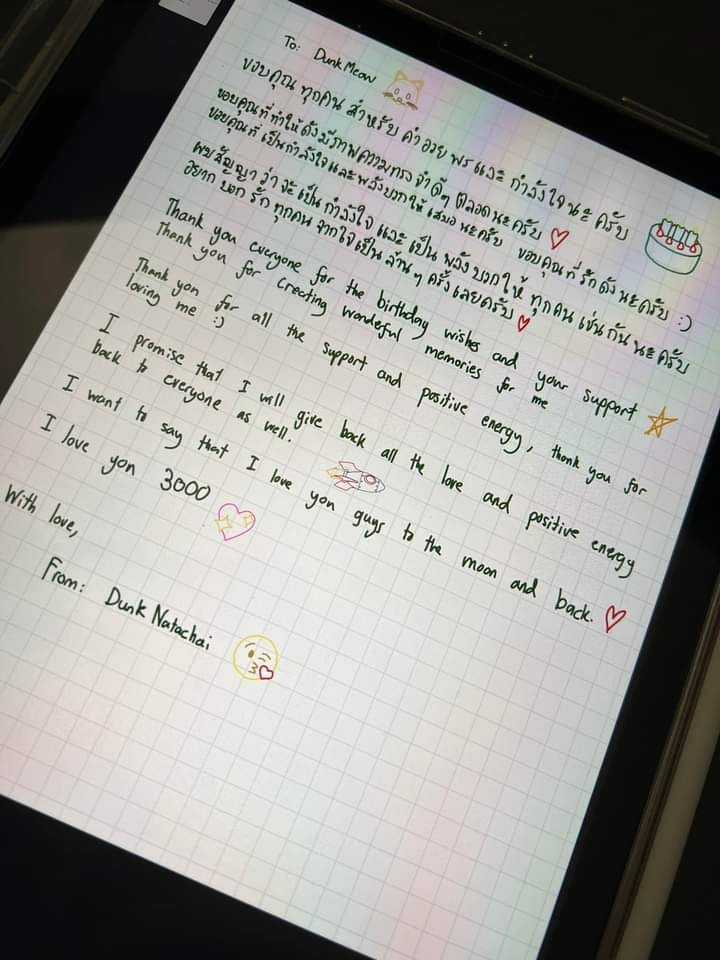 To: Dunk Meow
ขอบคุณ ทุกคน สำหรับ คำอวยพร และ กำลังใจ นะ ครับ
ขอบคุณที่ทำให้ดังมีภาพความทรงจำดีๆ ตลอดนะครับ
ขอบคุณที่ เป็นกำลังใจ และ พลังบวกให้ เสมอ นะครับ ขอบคุณที่ รักดังนะครับ :)
ผมสัญญาว่า จะ เป็น กำลังใจ และ เป็น พลังบวกให้ ทุกคน เช่นกัน นะ ครับ
อยาก บอก รัก ทุกคน จากใจเป็น ล้านๆ ครั้ง เลยครับ
Thank you everyone for the birthday wishes and your support
Thank you for creating wonderful memories for me
Thank you for all the support and positive energy, thank you for
loving me :)
I promise that I will give back all the love and positive energy
back to everyone as well.
I want to say that I love you guys to the moon and back.
I love you 3000
With love,
From: Dunk Natachai